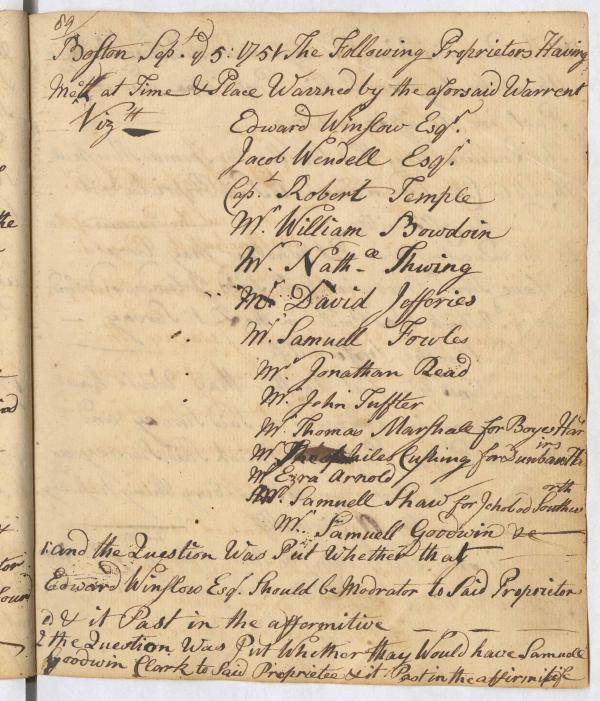 89
Boston Sept. ye 5: 1751 The Following Proprietors Having
Mett at Time & Place Warned by the aforsaid Warrent
Viztt
Edward Winslow Esqr.
Jacob Wendell Esqr.
Capt. Robert Temple
Mr. William Bowdoin
Mr. Nath-ll Thwing
Mr. David Jefferies
Mr. Samuell Fowles
Mr. Jonathan Read
Mr. John Tuffter
Mr. Thomas Marshall for Boyes Hair
irs
Mr. Cushing for
Mr Ezra Arnold
orth
Mr. Samuell Shaw for Southw
Mr. Samuell Goodwin &c
1: and the Question Was Put Whether that
Edward Winslow Esqr. Should be Modrator to Said Proprietor
s & it Past in the afformitive
2 the Question Was Put Whether thay Would have Samuell
Goodwin Clark to Said Proprietee & it Past in the affirmitife